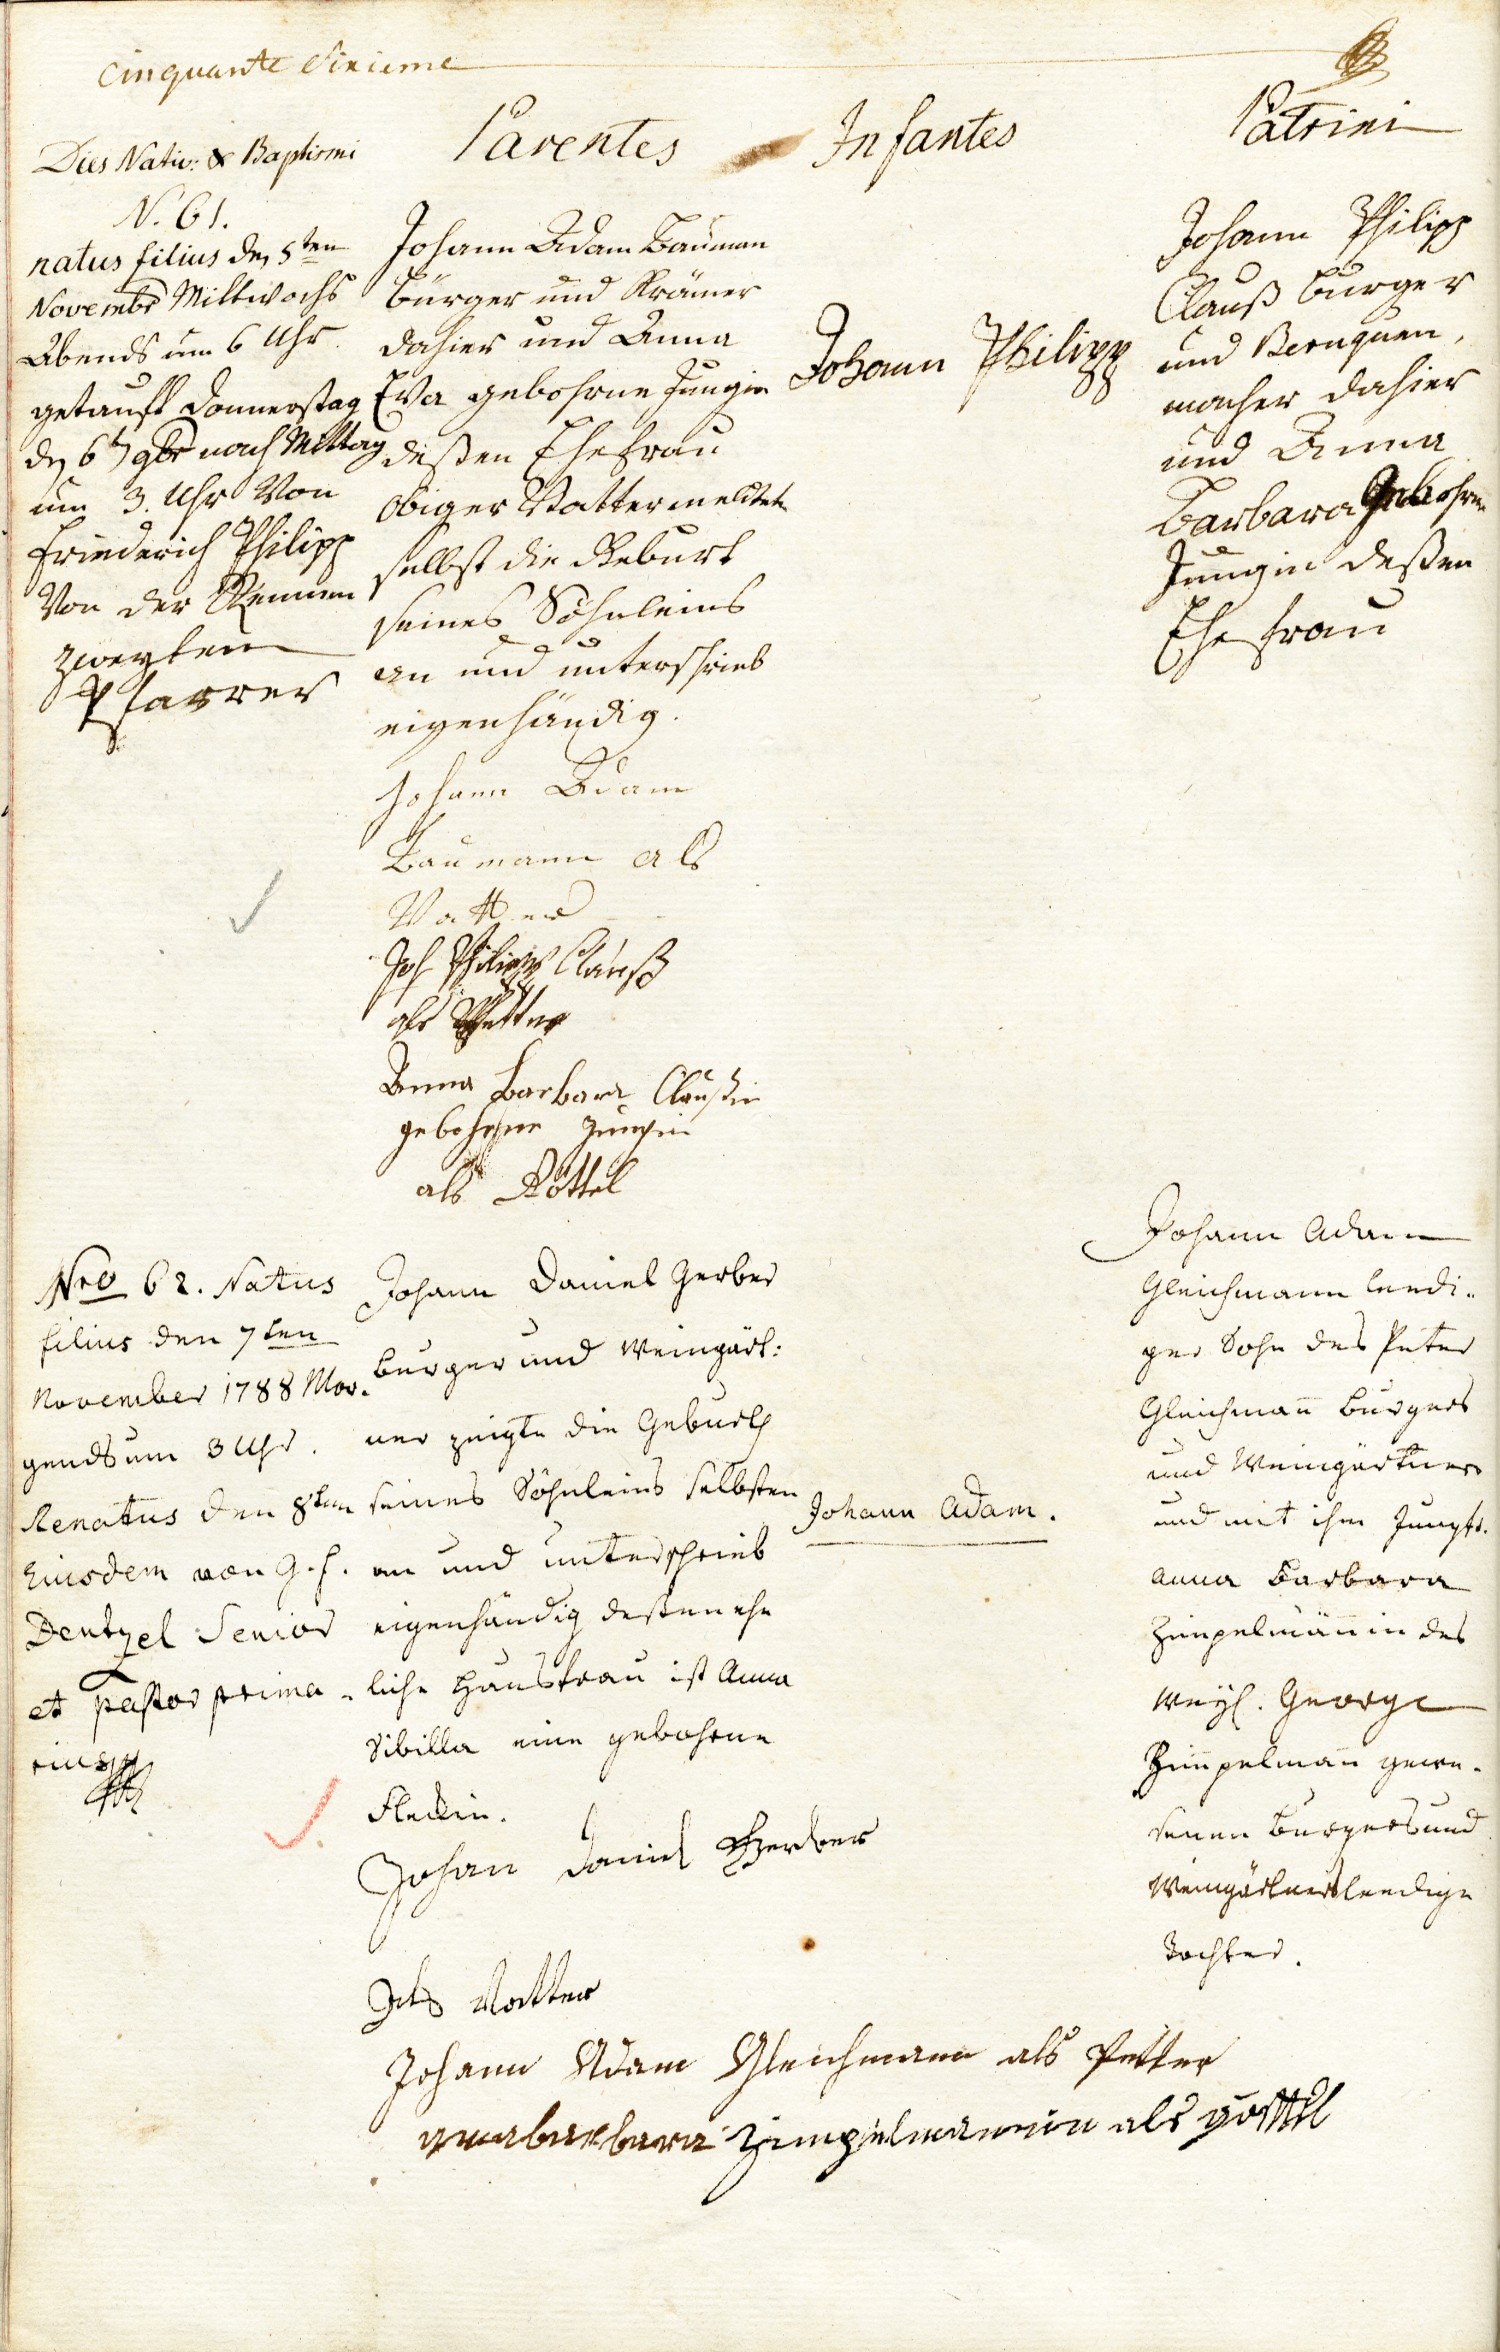 Cinquante Sixieme
Dies Nativ: & Baptismi
Parentes
Infantes
Patrini
N. 61.
natus filius den 5ten
Novembr Mittwochs
Abends um 6 Uhr.
getauft Donnerstag
den 6t 9br nach Mittag
um 3. Uhr Von
Friederich Philipp
Von der
zweyten
Pfarrer
Johann Adam Bauman
Burger und Krämer
dahier und Anna
Eva gebohrne Jungin
deßen Ehefrau
obiger Vatter meldete
selbst die Geburt
seines Söhnleins
an und unterschrieb
eigenhändig.
Johann Adam
Baumann als
Vatter
Joh Philipp Clauß
als Pfetter
Anna Barbara Claußin
gebohrne Jungin
als Göttel
Johann Philipp
Johann Philipp
Clauß Burger
und Beruquen,
macher dahier
und Anna
Barbara Gebohrne
Jungin deßen
Ehefrau
Nro 62. Natus
filius den 7ten
November 1788 Mor-
gends um 3 Uhr.
Renatus den 8ten
Eiusdem von G. f.
Dentzel Senior
et pastor prima-
rius
Johann Daniel Gerber
Burger und Weingärt:
ner zeigte die Geburth
seines Söhnleins selbsten
an und unterschrieb
eigenhändig deßen ehe
liche Hausfrau ist Anna
Sibilla eine gebohrne
Fleckin.
Johan Daniel Gerber
Als Vatter
Johann Adam Gleichmann als Petter
anabarbara Zimpelmannin als göttel
Johann Adam.
Johann Adam
Gleichmann leedi-
ger Sohn des Peter
Gleichman̄ Burgers
und Weingärtners
und mit ihm Jungfr.
Anna Barbara
Zimpelmän̄in des
weyl. George
Zim̄pelman̄ gewe-
senen Burgers und
Weingärtners leedige
Tochter.